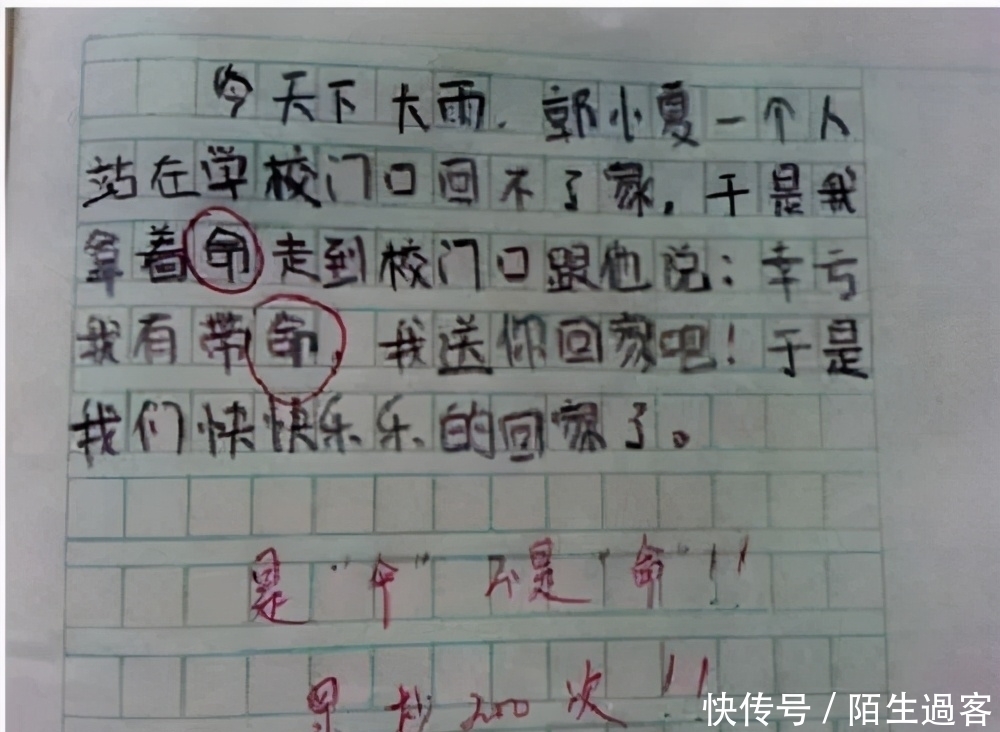 今天下大雨，郭小夏一个人
站在学校门口回不了家，于是我
拿着命走到校门口跟他说：幸亏
我有带命，我送你回家吧！于是
我们快快乐乐的回家了。
是“伞”不是“命”！！
罚抄200次！！
快传号 / 陌生過客